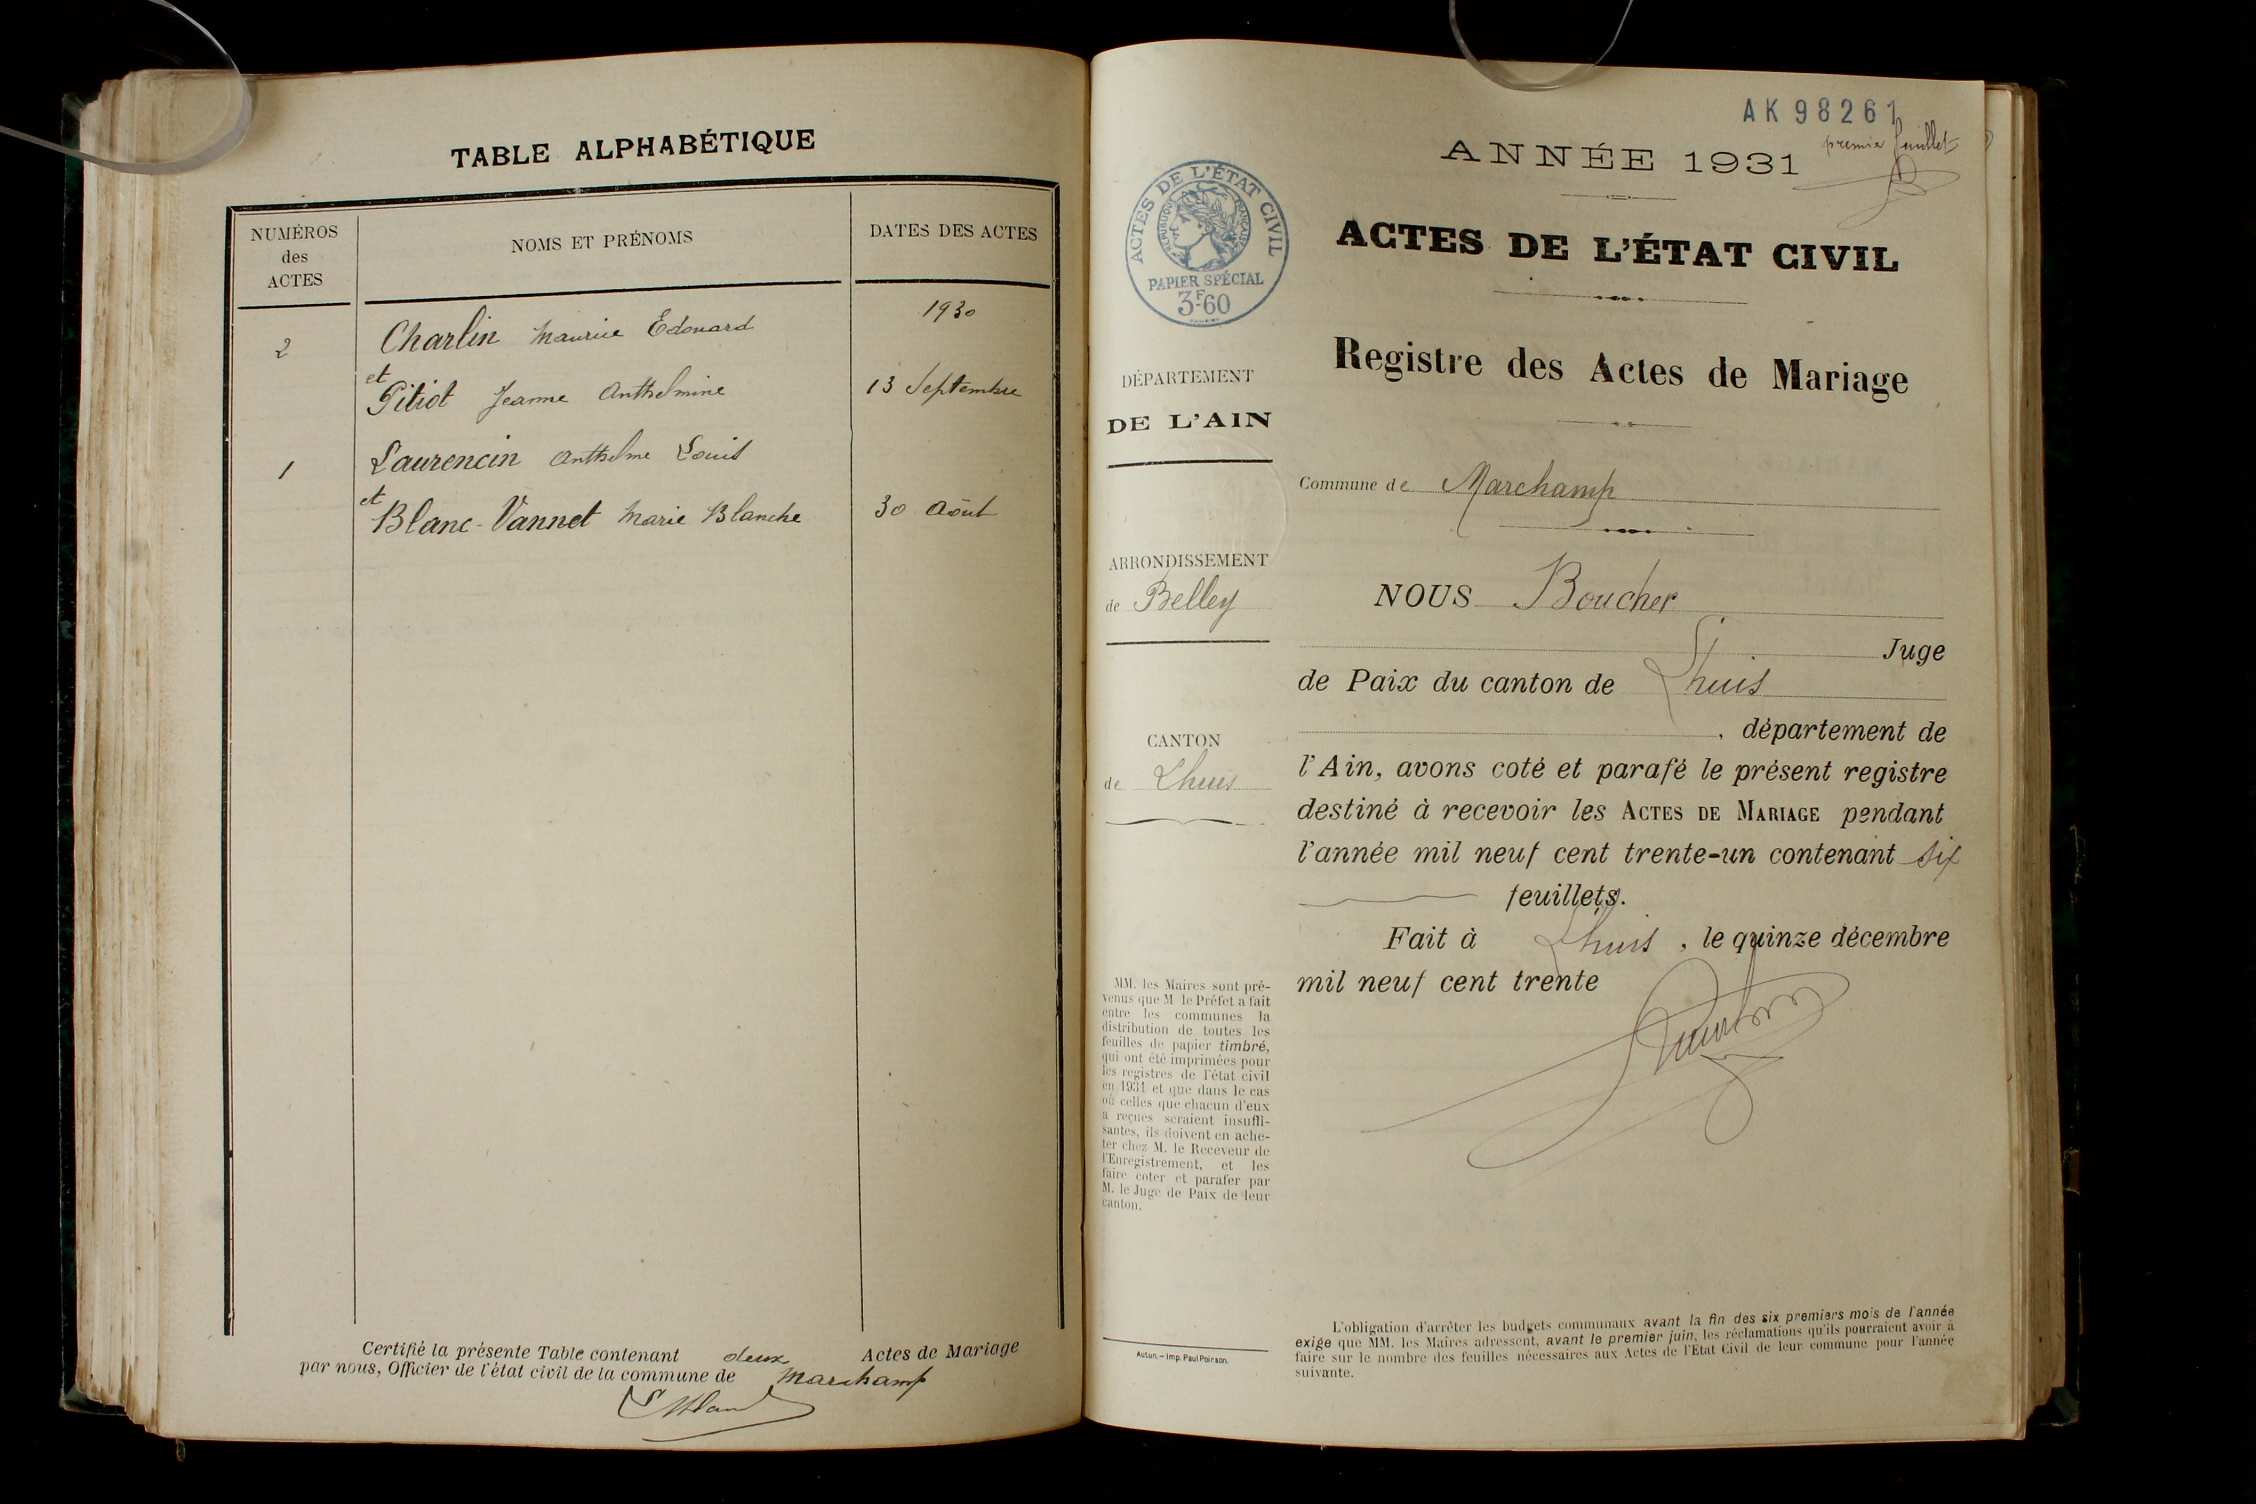 TABLE ALPHABÉTIQUE
NUMÉROS
des
ACTES
NOMS ET PRÉNOMS
DATES DES ACTES
1930
2 Charlin Maurice Édouard
et
Pitiot Jeanne Anthelmine 13 Septembre
1 Laurencin Anthelme Louis
et
Blanc-Vannet Marie Blanche 30 Août
Certifié la présente Table contenant deux Actes de Mariage
par nous, Officier de l'état civil de la commune de Marchamp
AK 98261
premier feuillet
ANNÉE 1931
ACTES DE L'ÉTAT CIVIL
RÉPUBLIQUE FRANÇAISE
PAPIER SPÉCIAL
3F.60
ACTES DE L'ÉTAT CIVIL
Registre des Actes de Mariage
DÉPARTEMENT
DE L'AIN
Commune de Marchamp
ARRONDISSEMENT
de Belley
CANTON
de Lhuis
NOUS Boucher
Juge
de Paix du canton de Lhuis
, département de
l'Ain, avons coté et parafé le présent registre
destiné à recevoir les ACTES DE MARIAGE pendant
l'année mil neuf cent trente-un contenant six
feuillets.
Fait à Lhuis, le quinze décembre
mil neuf cent trente
MM. les Maires sont pré-
venus que M le Préfet a fait
entre les communes la
distribution de toutes les
feuilles de papier timbré,
qui ont été imprimées pour
les registres de l'état civil
en 1931 et que dans le cas
où celles que chacun d'eux
a reçues seraient insuffi-
santes, ils doivent en ache-
ter chez M. le Receveur de
l'Enregistrement, et les
faire coter et parafer par
M. le Juge de Paix de leur
canton.
Autun. — Imp. Paul Poirson.
L'obligation d'arrêter les budgets communaux avant la fin des six premiers mois de l'année
exige que MM. les Maires adressent, avant le premier juin, les réclamations qu'ils pourraient avoir à
faire sur le nombre des feuilles nécessaires aux Actes de l'Etat Civil de leur commune pour l'année
suivante.